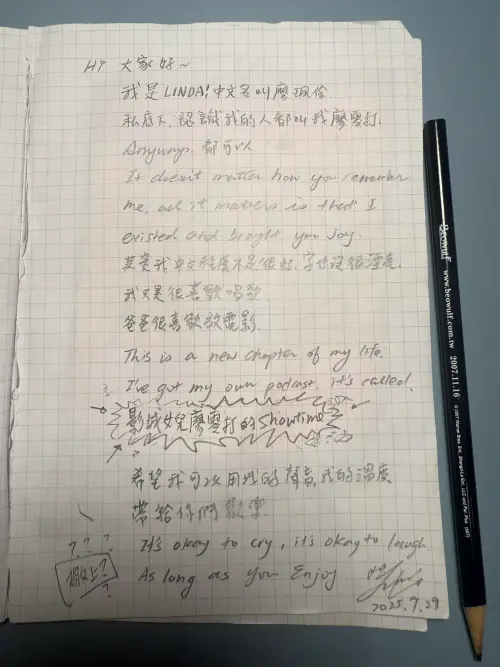 Hi 大家好~
我是LINDA!中文名叫廖珮伶
私底下,認識我的人都叫我廖雪打.
Anyways. 都可以
It doesn't matter how you remember
me, all it matters is that I
existed and brought you Joy.
其實我中文程度不是很好,字也沒很漂亮.
我只是很喜歡唱歌
爸爸很喜歡放電影.
This is a new chapter of my life.
I've got my own podcast, it's called.
影城女兒廖雪打的Showtime
希望我可以用我的聲音,我的溫度
帶給你們歡樂.
? ? ? It's okay to cry, it's okay to laugh.
As long as you Enjoy
2025.9.29
Beowulf www.beowulf.com.tw 2007.11.16